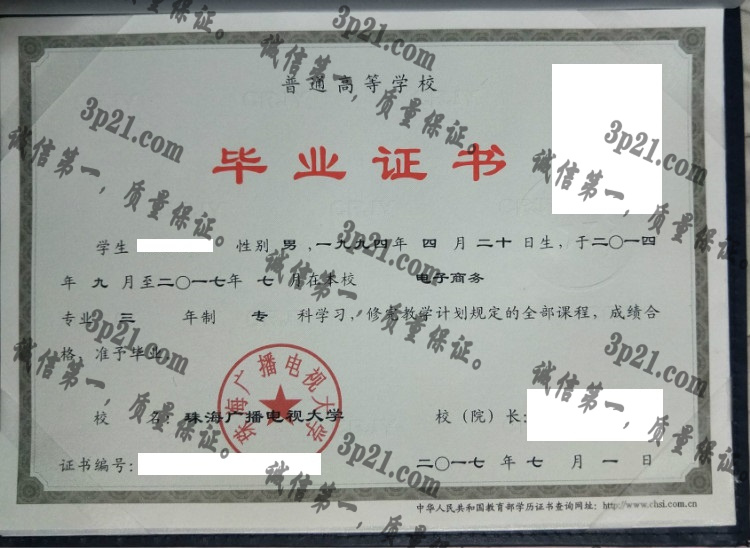 普通高等学校
毕业证书
学生 性别 男 ,一九九四年 四 月 二十 日生, 于二〇一四
年 九 月至二〇一七年 七 月在本校 电子商务
专业 三 年制 专 科学习, 修完教学计划规定的全部课程, 成绩合
格, 准予毕业。
校 名: 珠海广播电视大学 校(院)长:
珠海广播电视大学
证书编号: 二〇一七 年 七 月 一 日
中华人民共和国教育部学历证书查询网址: http://www.chsi.com.cn
3p21.com
诚信第一,质量保证。
3p21.com
诚信第一,质量保证。
3p21.com
诚信第一,质量保证。
3p21.com
诚信第一,质量保证。
3p21.com
诚信第一,质量保证。
3p21.com
诚信第一,质量保证。